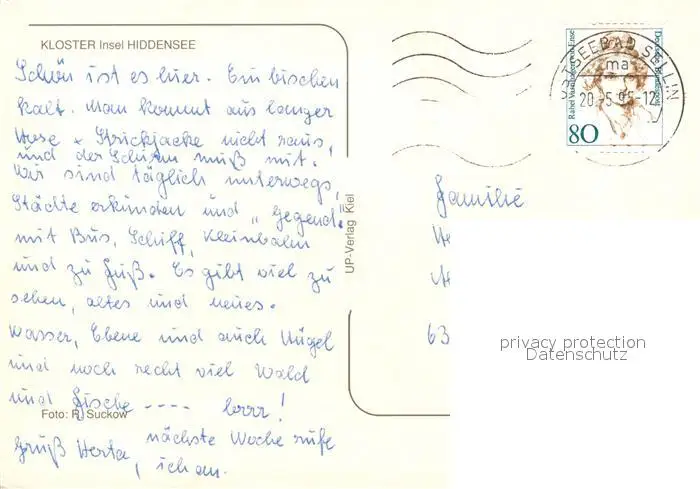 KLOSTER Insel HIDDENSEE
Schön ist es hier. Ein bischen
kalt. Man kommt aus langer
Hose + Strickjacke nicht raus,
und der Schirm muß mit.
Wir sind täglich unterwegs,
Städte erkunden und „Gegend".
mit Bus, Schiff, Kleinbahn
und zu Fuß. Es gibt viel zu
sehen, altes und neues.
Wasser, Ebene und auch Hügel
und noch recht viel Wald
und Fische ---- brrr!
Foto: R. Suckow
Gruß Herta, nächste Woche rufe
ich an.
UP-Verlag Kiel
OSTSEEBAD SELLIN
ma
20.-5.95-12
Rahel Varnhagen von Ense
Deutsche Bundespost
80
Familie
63
privacy protection
Datenschutz